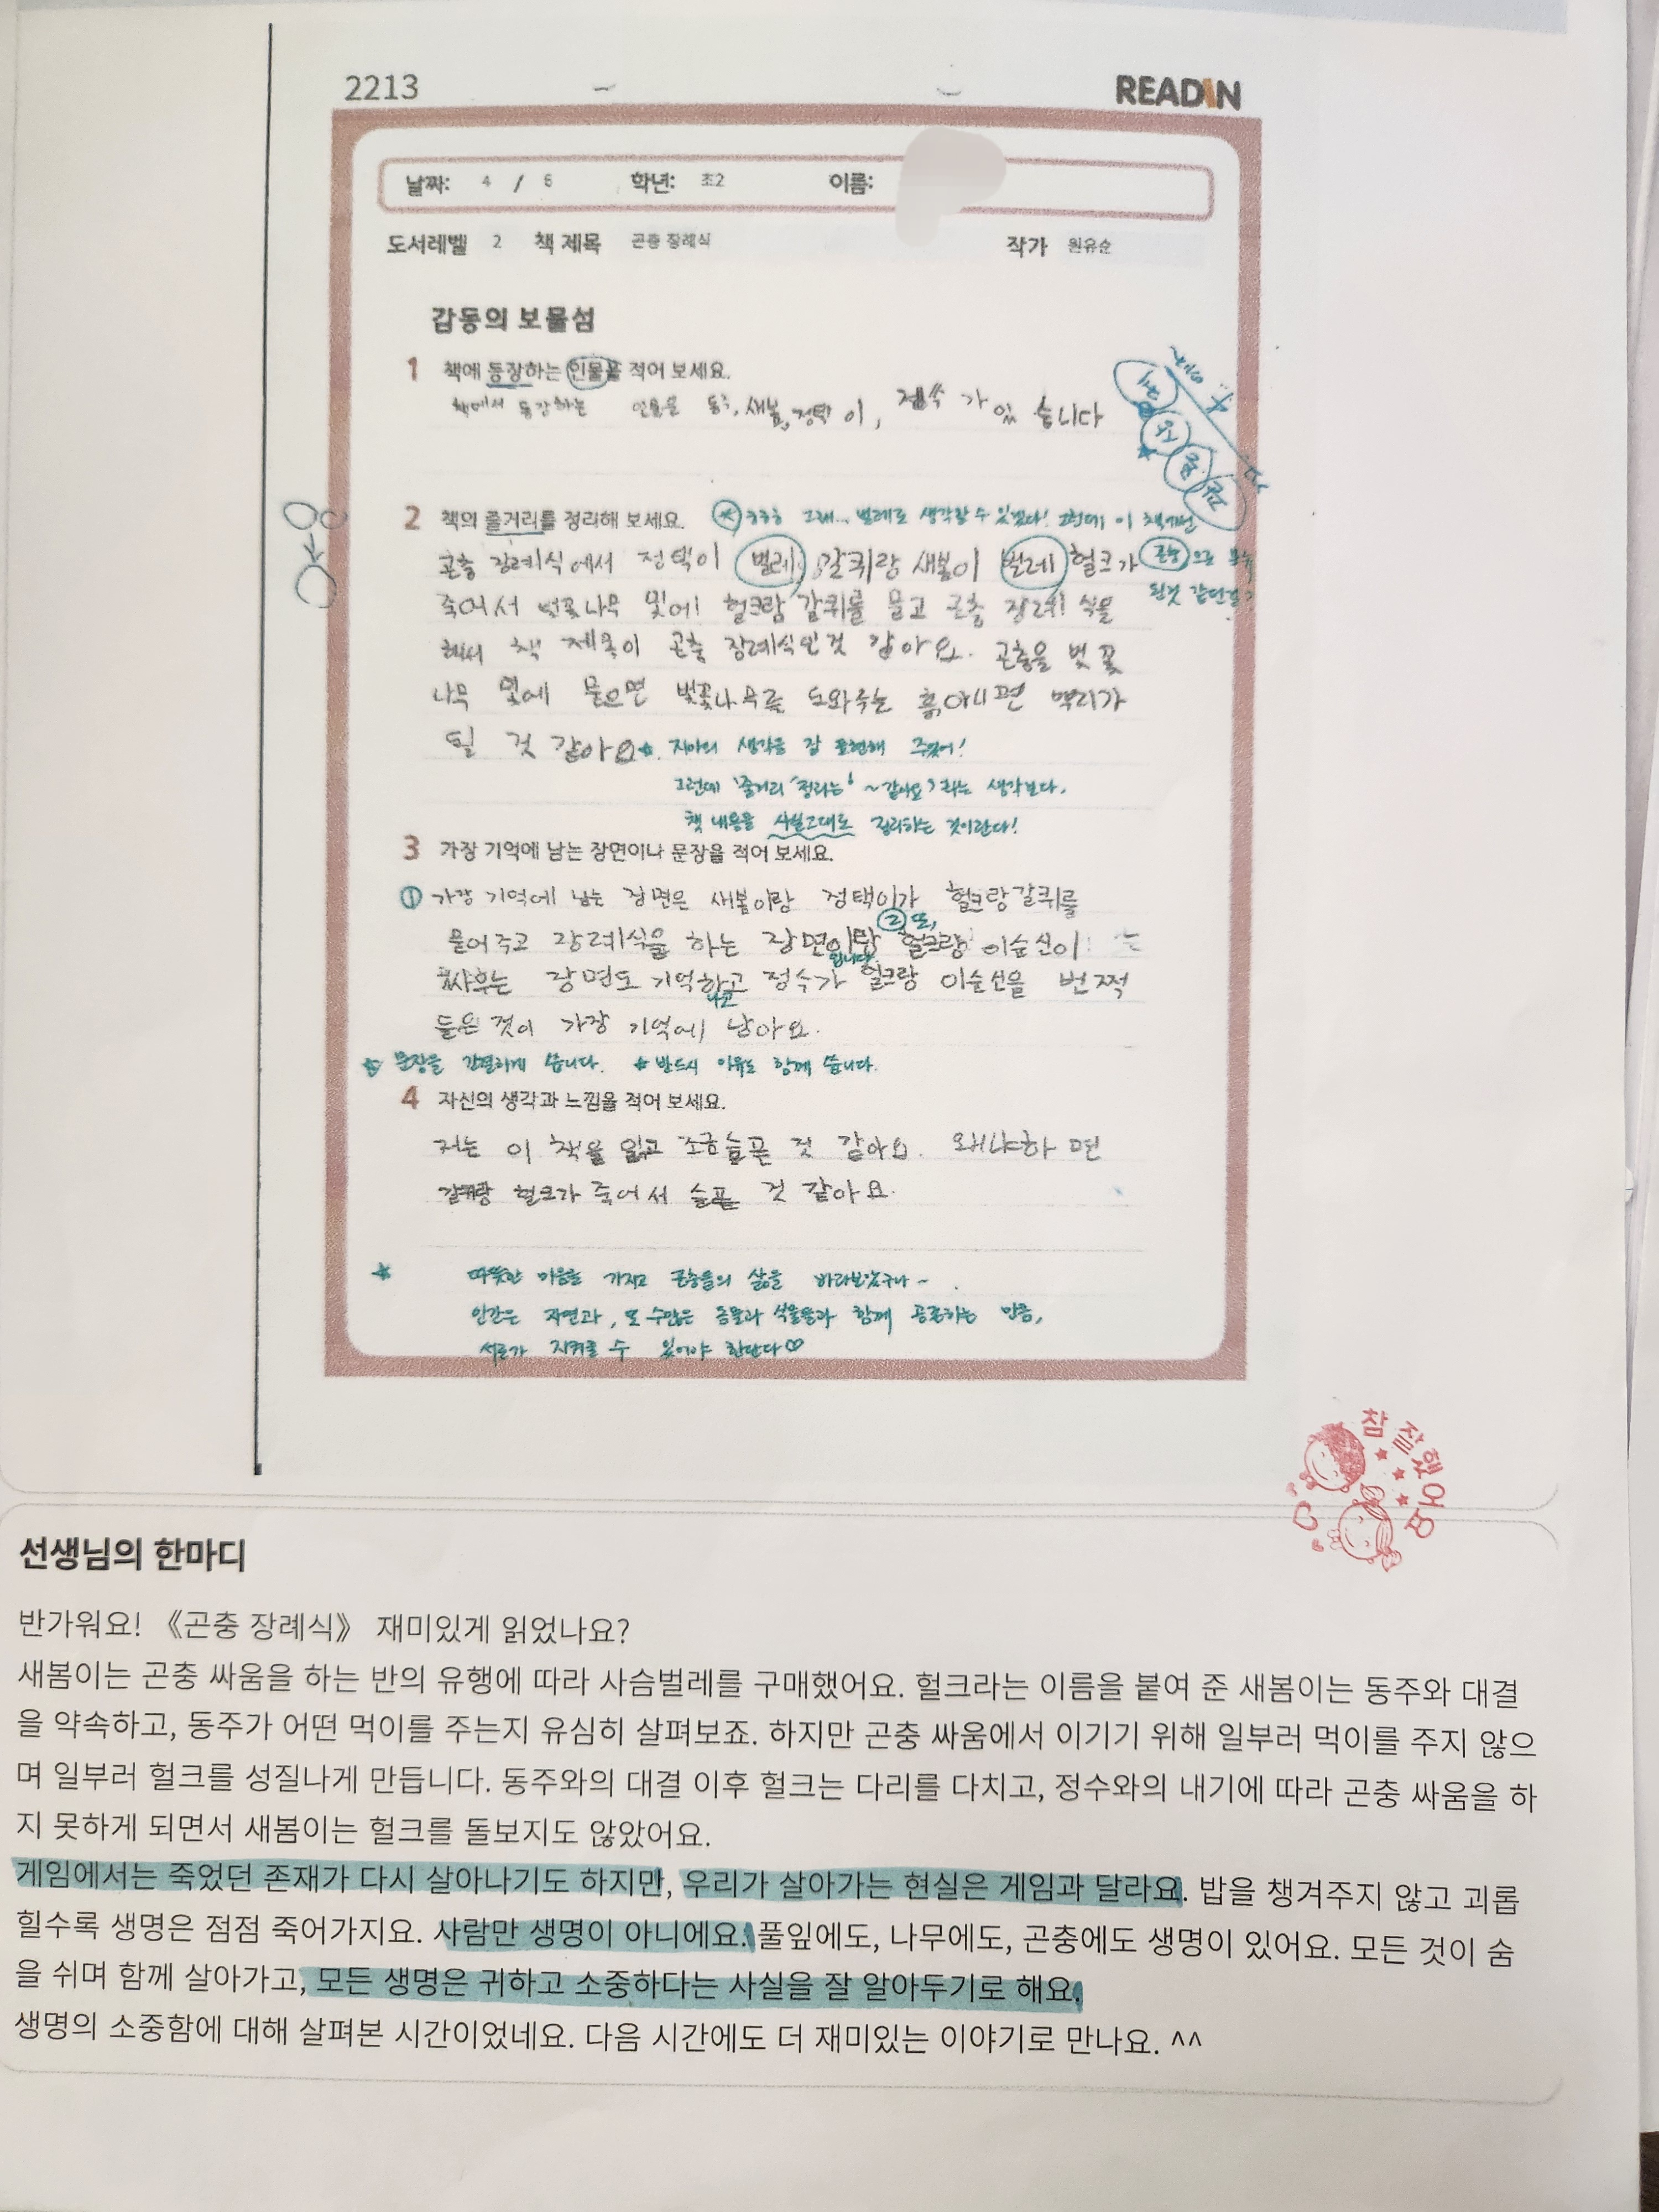 2213
READIN
날짜: 4 / 6 학년: 초2 이름:
도서레벨 2 책 제목 곤충 장례식 작가 원유순
감동의 보물섬
1 책에 등장하는 인물을 적어 보세요.
책에서 등장하는 인물은 동주, 새봄, 정택이, 정수 가 있 습니다
2 책의 줄거리를 정리해 보세요.
ㅋㅋㅋ 그래... 벌레로 생각할 수 있겠다! 그런데 이 책에선
곤충 장례식에서 정택이 벌레 갈퀴랑 새봄이 벌레 헐크가
곤충 으로
죽어서 벚꽃나무 밑에 헐크랑 갈퀴를 묻고 곤충 장례식을
된것 같던걸?
해서 책 제목이 곤충 장례식인것 같아요. 곤충을 벚꽃
나무 밑에 묻으면 벚꽃나무를 도와주는 흙아니면 뿌리가
될 것 같아요.
생각을 잘 표현해 주었어!
그런데 '줄거리 정리는' ~같아요'라는 생각보다,
책 내용을 사실그대로 정리하는 것이란다!
3 가장 기억에 남는 장면이나 문장을 적어 보세요.
① 가장 기억에 남는 장면은 새봄이랑 정택이가 헐크랑갈퀴를
② 또,
묻어 주고 장례식을 하는 장면이랑 헐크랑 이순신이
입니다
싸우는 장면도 기억하고 정수가 헐크랑 이순신을 번쩍
나고
들은 것이 가장 기억에 남아요.
문장을 간결하게 씁니다. 반드시 이유도 함께 씁니다.
4 자신의 생각과 느낌을 적어 보세요.
저는 이 책을 읽고 조금슬픈 것 같아요. 왜냐하 면
갈퀴랑 헐크가 죽어서 슬픈 것 같아요.
따뜻한 마음을 가지고 곤충들의 삶을 바라보았구나~
인간은 자연과, 또 수많은 동물과 식물들과 함께 공존하는 만큼,
서로가 지켜줄 수 있어야 한단다♡
참 잘했어요
선생님의 한마디
반가워요! 《곤충 장례식》 재미있게 읽었나요?
새봄이는 곤충 싸움을 하는 반의 유행에 따라 사슴벌레를 구매했어요. 헐크라는 이름을 붙여 준 새봄이는 동주와 대결
을 약속하고, 동주가 어떤 먹이를 주는지 유심히 살펴보죠. 하지만 곤충 싸움에서 이기기 위해 일부러 먹이를 주지 않으
며 일부러 헐크를 성질나게 만듭니다. 동주와의 대결 이후 헐크는 다리를 다치고, 정수와의 내기에 따라 곤충 싸움을 하
지 못하게 되면서 새봄이는 헐크를 돌보지도 않았어요.
게임에서는 죽었던 존재가 다시 살아나기도 하지만, 우리가 살아가는 현실은 게임과 달라요. 밥을 챙겨주지 않고 괴롭
힐수록 생명은 점점 죽어가지요. 사람만 생명이 아니에요. 풀잎에도, 나무에도, 곤충에도 생명이 있어요. 모든 것이 숨
을 쉬며 함께 살아가고, 모든 생명은 귀하고 소중하다는 사실을 잘 알아두기로 해요.
생명의 소중함에 대해 살펴본 시간이었네요. 다음 시간에도 더 재미있는 이야기로 만나요. ^^